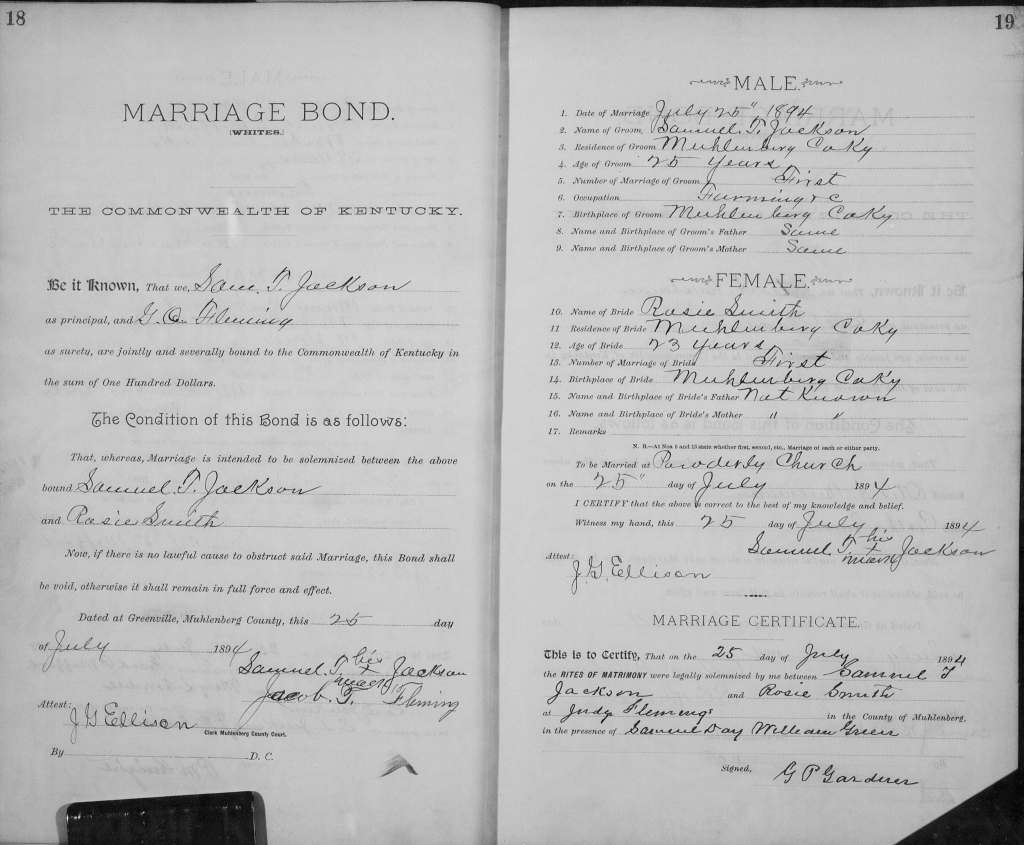 18
MARRIAGE BOND.
[WHITES.]
THE COMMONWEALTH OF KENTUCKY.
Be it Known, That we, Sam. T. Jackson
as principal, and G. C. Fleming
as surety, are jointly and severally bound to the Commonwealth of Kentucky in
the sum of One Hundred Dollars.
The Condition of this Bond is as follows:
That, whereas, Marriage is intended to be solemnized between the above
bound Samuel T. Jackson
and Rosie Smith
Now, if there is no lawful cause to obstruct said Marriage, this Bond shall
be void, otherwise it shall remain in full force and effect.
Dated at Greenville, Muhlenberg County, this 25 day
of July 1894
Samuel. T. his + mark Jackson
Jacob. T. Fleming
Attest:
J G Ellison
Clerk Muhlenberg County Court.
By D. C.
19
MALE.
1. Date of Marriage July 25" 1894
2. Name of Groom Samuel. T. Jackson
3. Residence of Groom Muhlenberg Co Ky
4. Age of Groom 25 years
5. Number of Marriage of Groom First
6. Occupation Farming & c
7. Birthplace of Groom Muhlenberg Co Ky
8. Name and Birthplace of Groom's Father Same
9. Name and Birthplace of Groom's Mother Same
FEMALE.
10. Name of Bride Rosie Smith
11 Residence of Bride Muhlenberg Co Ky
12. Age of Bride 23 years
13. Number of Marriage of Bride First
14. Birthplace of Bride Muhlenberg Co Ky
15. Name and Birthplace of Bride's Father Not Known
16. Name and Birthplace of Bride's Mother " "
17. Remarks
N. B.—At Nos 5 and 13 state whether first, second, etc., Marriage of each or either party.
To be Married at Powderly Church
on the 25" day of July 1894
I CERTIFY that the above is correct to the best of my knowledge and belief.
Witness my hand, this 25 day of July 1894
Samuel. T. his + mark Jackson
Attest:
J. G. Ellison
MARRIAGE CERTIFICATE.
This is to Certify, That on the 25 day of July 1894
the RITES OF MATRIMONY were legally solemnized by me between Samuel T
Jackson and Rosie Smith
at Judge Flemings in the County of Muhlenberg.
in the presence of Samuel Day William Green
Signed, G P Gardner